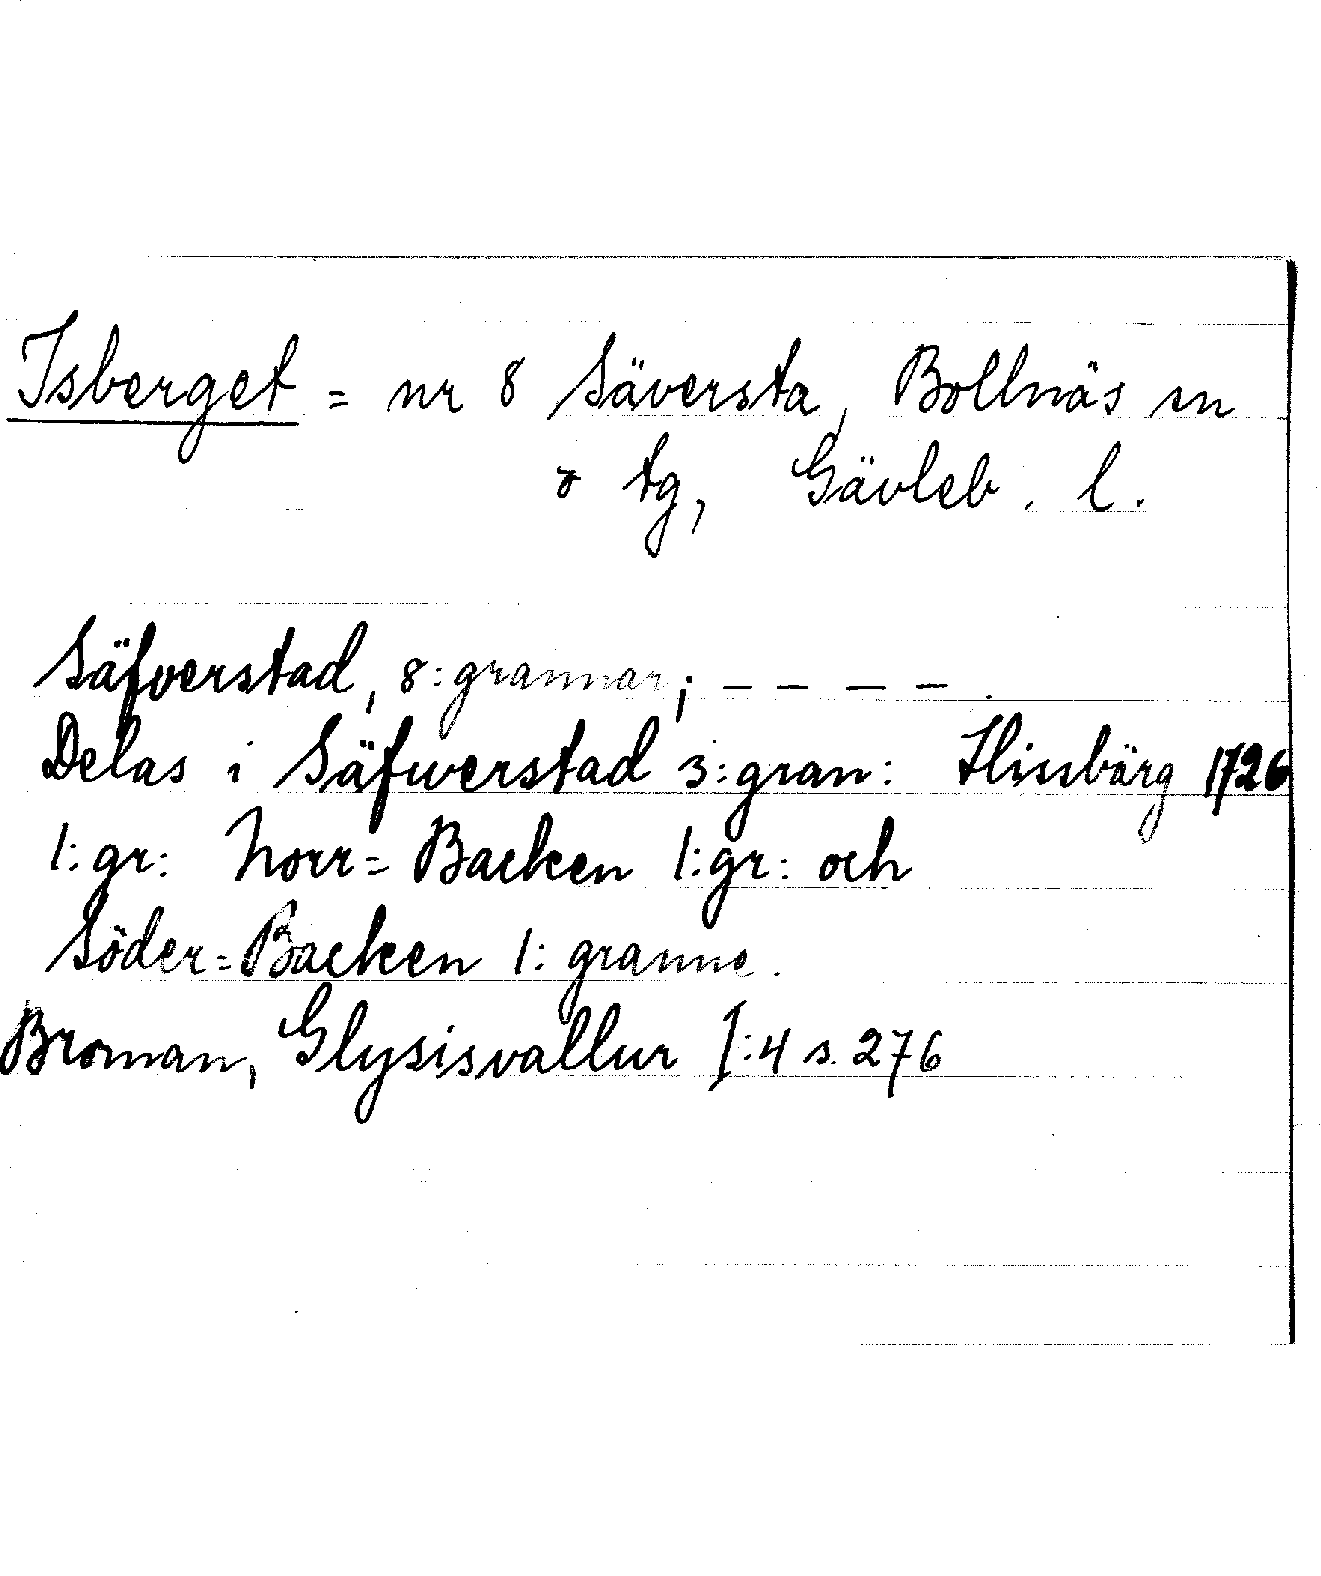 Isberget = nr 8 Säversta, Bollnäs sn
o tg, Gävleb. l.
Säfverstad, 8:grannar; – – – – .
Delas i Säfwerstad 3:gran: Hissbärg 1726
1:gr: Norr=Backen 1:gr: och
Söder=Backen 1: granne.
Broman, Glysisvallur I:4 s. 276